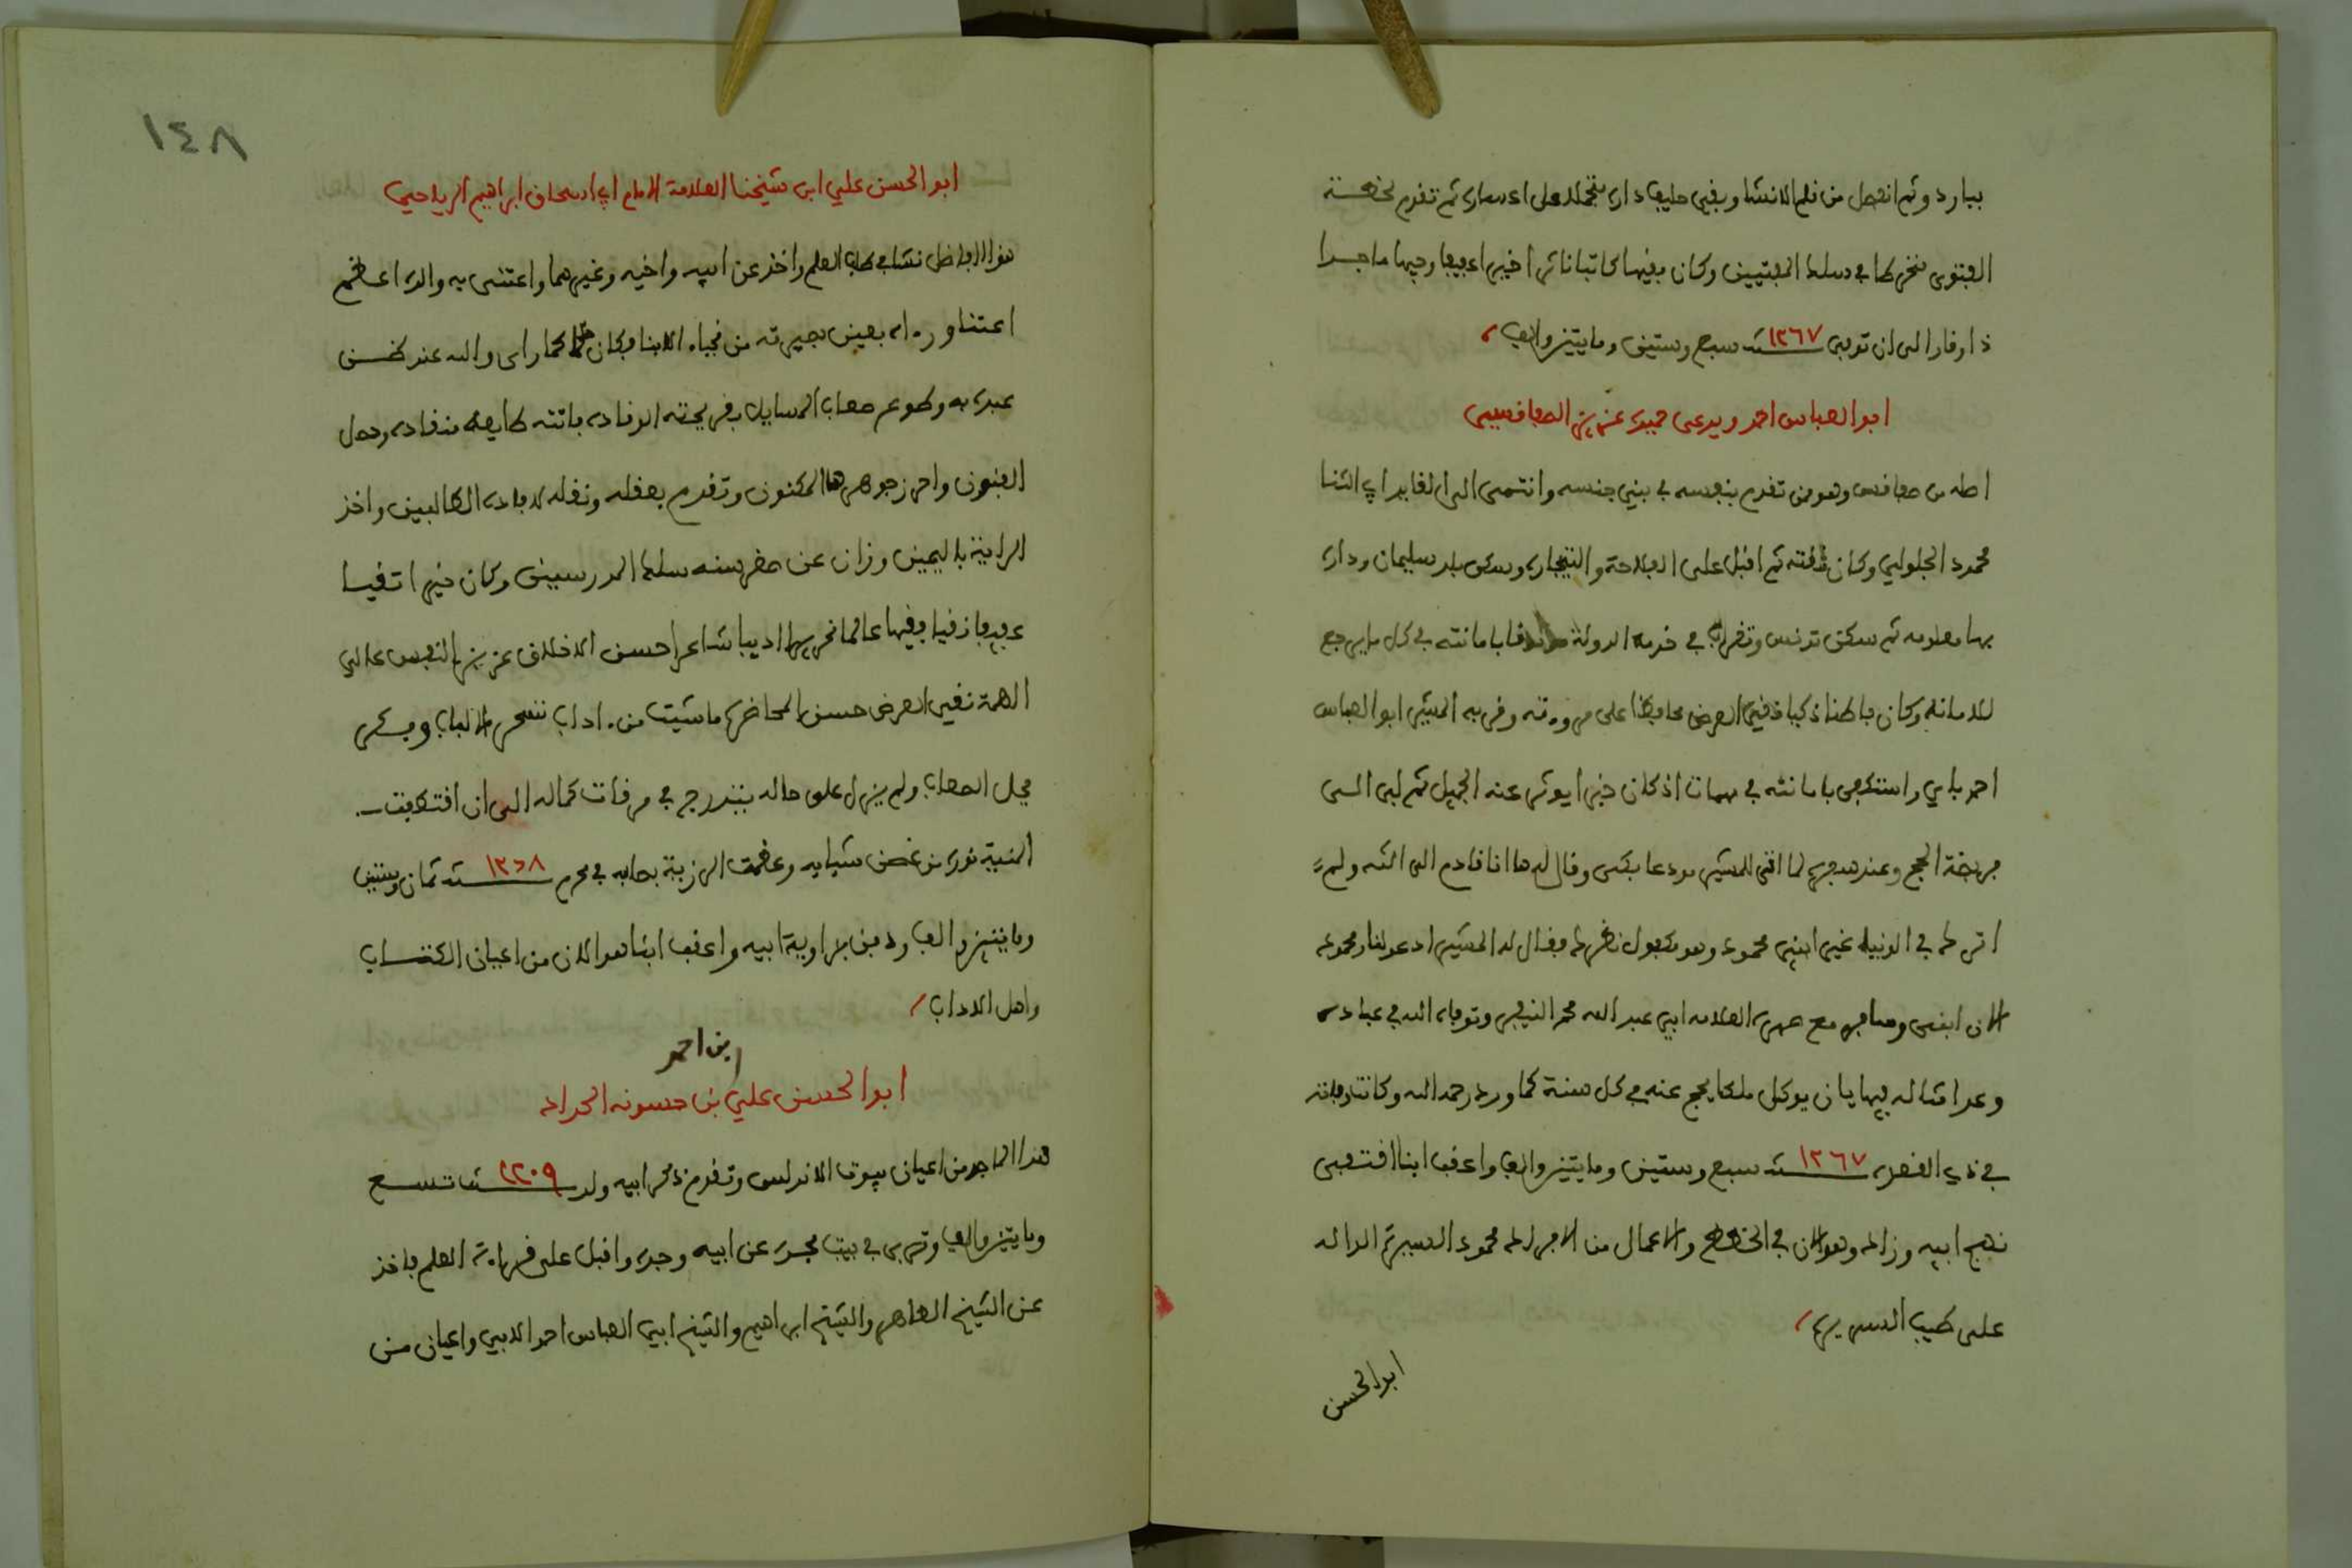 بباردو ثم انفصل من قلم الانشا وبقي حليف داره متجملا على اعساره ثم تقدم لخطة
الفتوى منخرطا في سلك المفتيين وكان فقيها كاتبا ناثرا خيرا عفيفا وجيها ماجدا
ذا وقار الى ان توفي سنة ١٢٦٧ سبع وستين ومايتين والف
ابو العباس احمد ويدعى حميدة عزيز الصفاقسي
اصله من صفاقس وهو ممن تقدم بنفسه في بني جنسه وانتمى الى القايد ابي الثنا
محمود الجلولي وكان ثقته ثم اقبل على الفلاحة والتجارة وسكن بلد سليمان وداره
بها معلومة ثم سكن تونس وتقدم في خدمة الدولة بامانته في كل ما يرجع
للامانة وكان فاطنا ذكيا نقي العرض محافظا على مروءته وقربه المشير ابو العباس
احمد باي واستكفى بامانته في مهمات اذ كان خيرا يوثر عنه الجميل ثم لبى الى
فريضة الحج وعند سفره لما اتى للمشير مودعا بكى وقال له ها انا قادم الى الله ولم
اترك في الدنيا غير ابني محمود وهو مكفول نظرك فقال له المشير ادع لنا ومحمود
الان ابني وسافر مع صهره العلامة ابي عبد الله محمد النيفر وتوفاه الله في عباده
وعد امثاله فيها بان يوكل ملكا يحج عنه في كل سنة كما ورد رحمه الله وكانت وفاته
في ذي القعدة سنة ١٢٦٧ سبع وستين ومايتين والف واعقب ابنا اقتفى
نهج ابيه وزاد وهو الان في الخطط والاعمال من الافراد محمود السيرة الدالة
على طيب السريرة
ابو الحسن
١٤٨
ابو الحسن علي ابن شيخنا العلامة الامام ابي اسحاق ابراهيم الرياحي
هذا الفاضل نشا في طلب العلم واخذ عن ابيه واخيه وغيرهما واعتنى به والده اعظم
اعتنا وراه بعين بصيرته من نجباء الابنا فكان كما راى والله عند ظن
عبده به وطوع صعاب المسايل بقريحته الوقادة فاتته طايعة منقادة وحصل
الفنون واحرز جوهرها المكنون وتقدم بعقله ونقله لافادة الطالبين واخذ
الراية باليمين وزان عن صغر سنه سلك المدرسين وكان خيرا تقيا
عفيفا زكيا فقيها عالما نحريرا اديبا شاعرا حسن الاخلاق عزيز النفس عالي
الهمة نقي العرض حسن المحاضرة ما شيت من اداب تسحر الالباب وفكر
يحل الصعاب ولم يزل على حاله يتدرج في مرقات كماله الى ان اقتطفت
المنية نوره من غصن شبابه وعظمت الرزية بمصابه في محرم سنة ١٢٦٨ ثمان وستين
ومايتين والف ودفن بزاوية ابيه واعقب ابنا هو الان من اعيان الكتاب
واهل الاداب
بن احمد
ابو الحسن علي بن حسونه الحداد
هذا الماجد من اعيان بيوت الاندلس وتقدم ذكر ابيه ولد سنة ١٢٠٩ تسع
ومايتين والف وتربى في بيت مجده عن ابيه وجده واقبل على قراءة العلم فاخذ
عن الشيخ الطاهر والشيخ ابراهيم والشيخ ابي العباس احمد الابي واعيان من